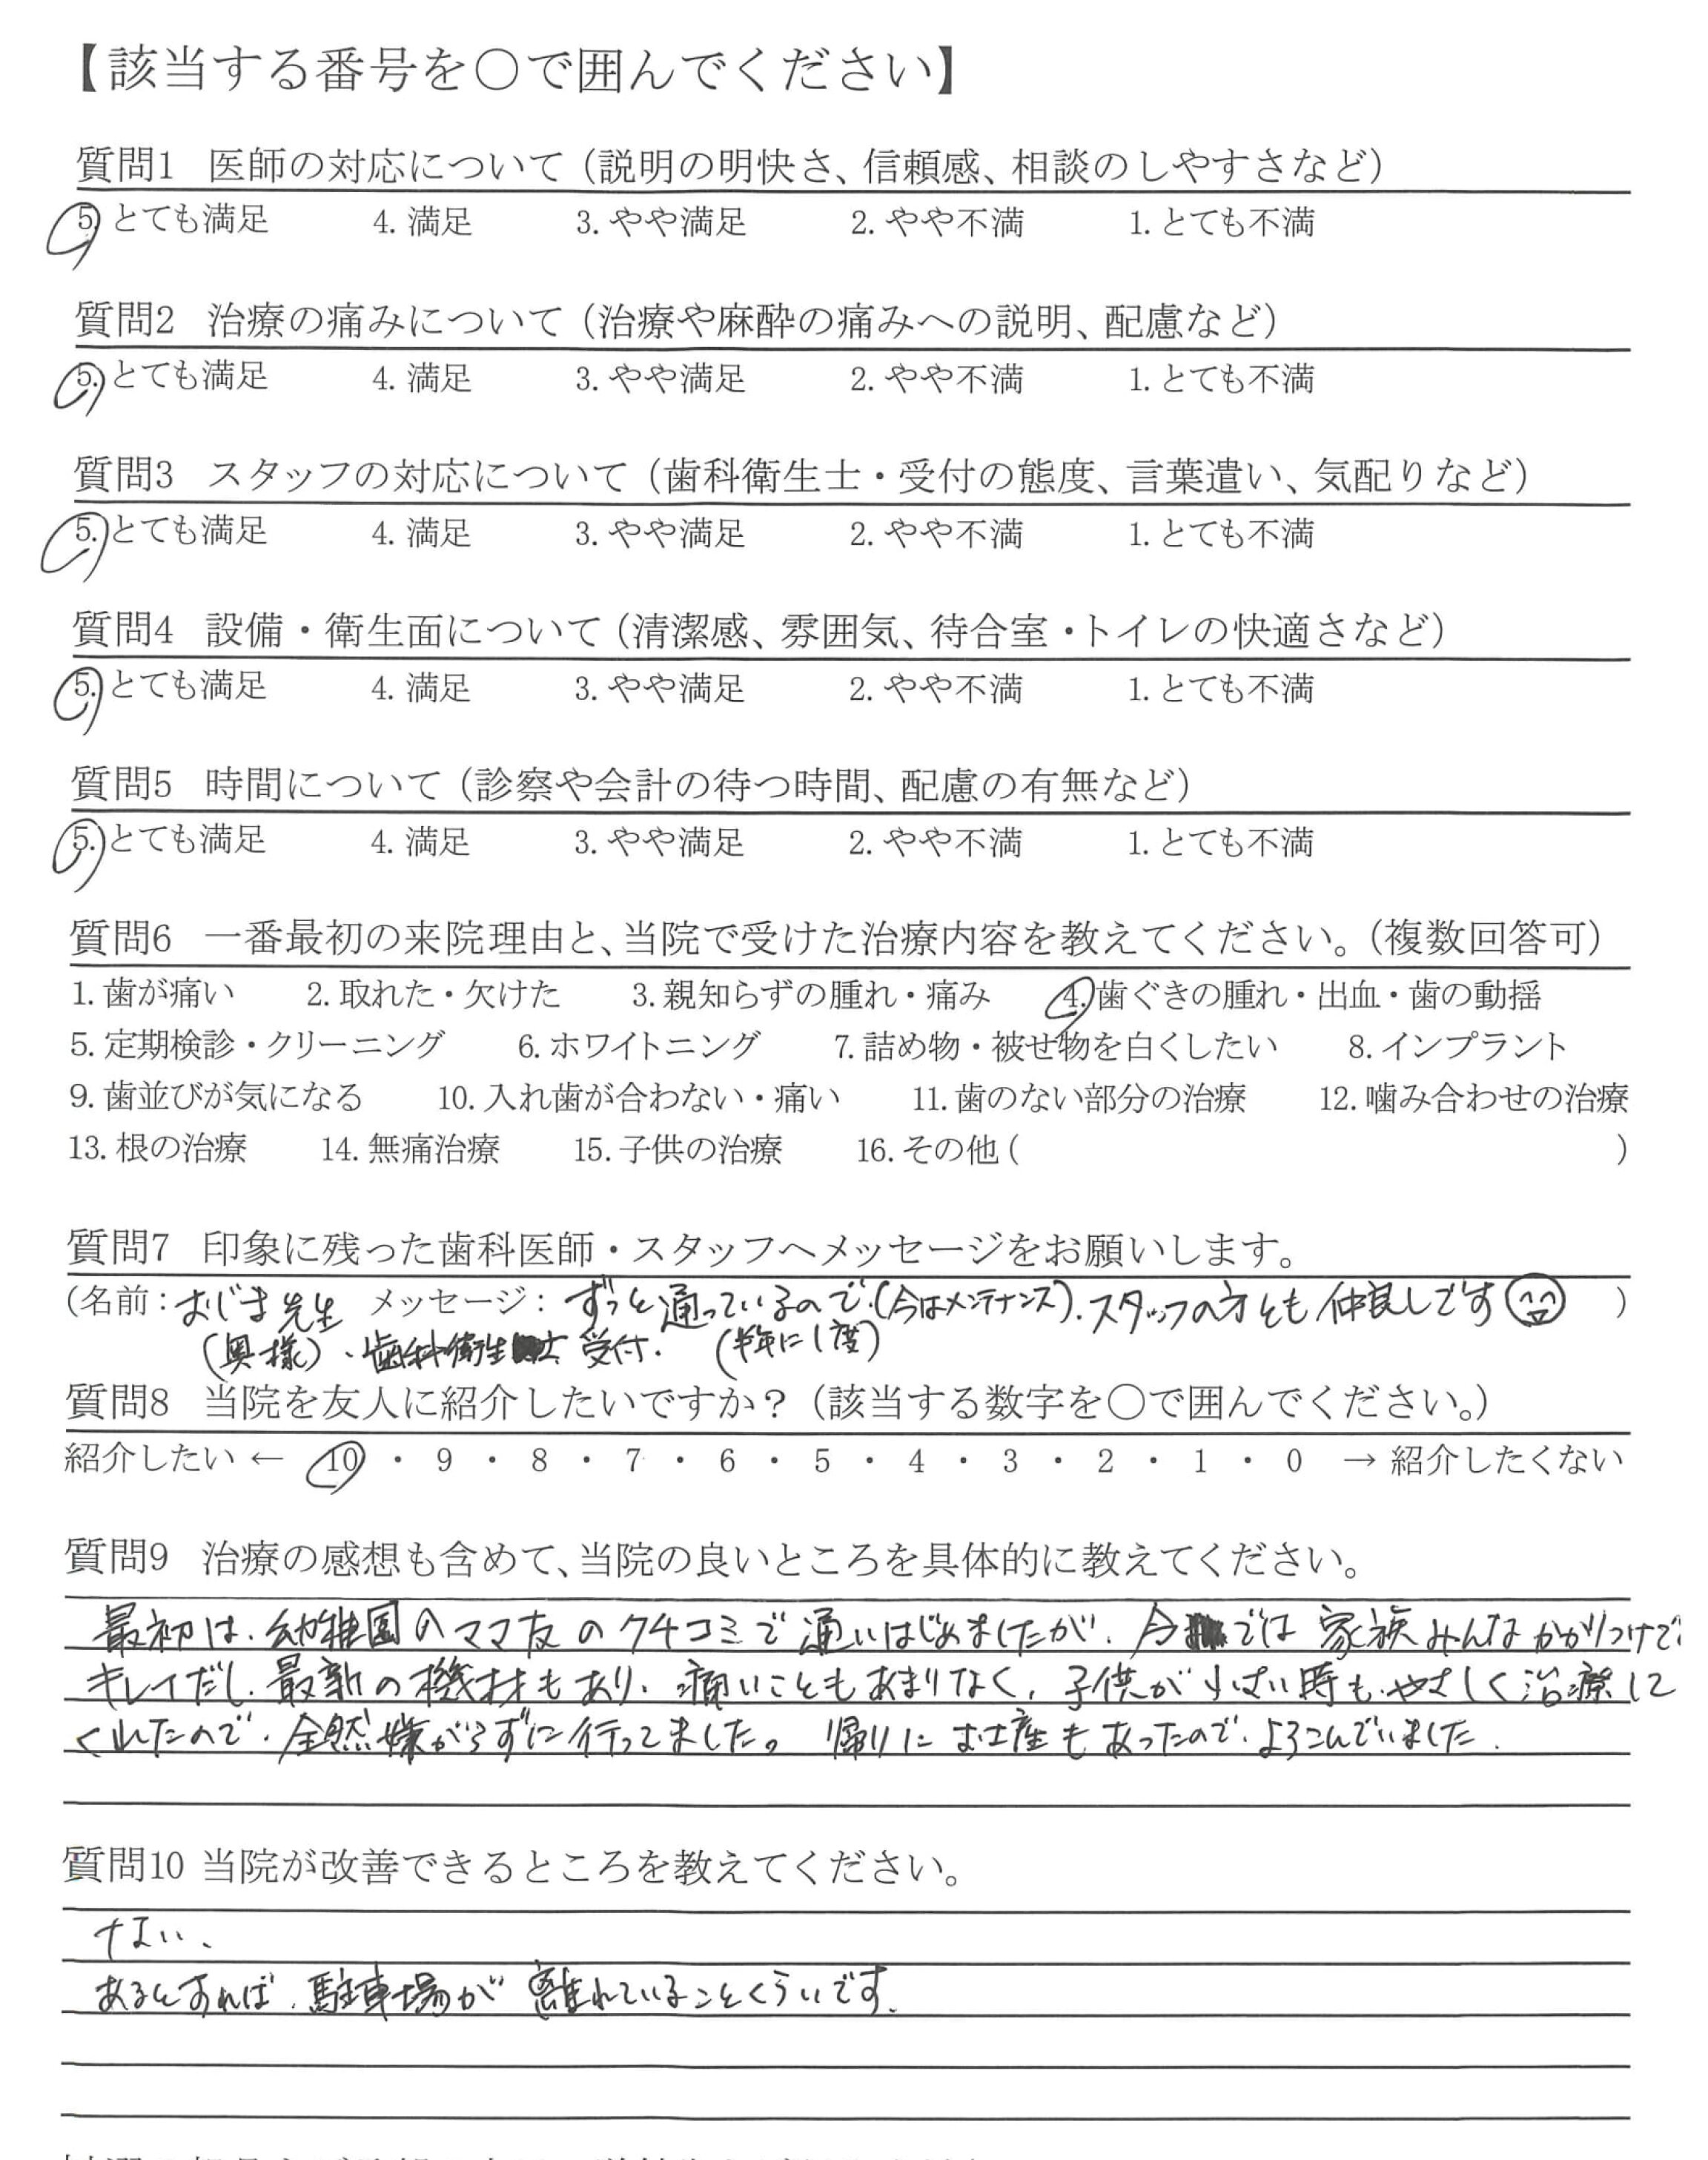 【該当する番号を〇で囲んでください】
質問1 医師の対応について（説明の明快さ、信頼感、相談のしやすさなど）
5. とても満足 4. 満足 3. やや満足 2. やや不満 1. とても不満
質問2 治療の痛みについて（治療や麻酔の痛みへの説明、配慮など）
5. とても満足 4. 満足 3. やや満足 2. やや不満 1. とても不満
質問3 スタッフの対応について（歯科衛生士・受付の態度、言葉遣い、気配りなど）
5. とても満足 4. 満足 3. やや満足 2. やや不満 1. とても不満
質問4 設備・衛生面について（清潔感、雰囲気、待合室・トイレの快適さなど）
5. とても満足 4. 満足 3. やや満足 2. やや不満 1. とても不満
質問5 時間について（診察や会計の待つ時間、配慮の有無など）
5. とても満足 4. 満足 3. やや満足 2. やや不満 1. とても不満
質問6 一番最初の来院理由と、当院で受けた治療内容を教えてください。（複数回答可）
1. 歯が痛い 2. 取れた・欠けた 3. 親知らずの腫れ・痛み 4. 歯ぐきの腫れ・出血・歯の動揺
5. 定期検診・クリーニング 6. ホワイトニング 7. 詰め物・被せ物を白くしたい 8. インプラント
9. 歯並びが気になる 10. 入れ歯が合わない・痛い 11. 歯のない部分の治療 12. 噛み合わせの治療
13. 根の治療 14. 無痛治療 15. 子供の治療 16. その他（ ）
質問7 印象に残った歯科医師・スタッフへメッセージをお願いします。
（名前：おじま先生 メッセージ：ずっと通っているので、(今はメンテナンス)、スタッフの方とも仲良しです ）
(奥様)・歯科衛生士 受付. (半年に1度)
質問8 当院を友人に紹介したいですか？（該当する数字を〇で囲んでください。）
紹介したい ← 10 ・ 9 ・ 8 ・ 7 ・ 6 ・ 5 ・ 4 ・ 3 ・ 2 ・ 1 ・ 0 → 紹介したくない
質問9 治療の感想も含めて、当院の良いところを具体的に教えてください。
最初は、幼稚園のママ友のクチコミで通いはじめましたが、今では家族みんなかかりつけで
キレイだし、最新の機材もあり、痛いこともあまりなく、子供が小さい時も、やさしく治療して
くれたので、全然嫌がらずに行ってました。 帰りにお土産もあったので、よろこんでいました.
質問10 当院が改善できるところを教えてください。
ない、
あるとすれば、駐車場が離れていることくらいです.